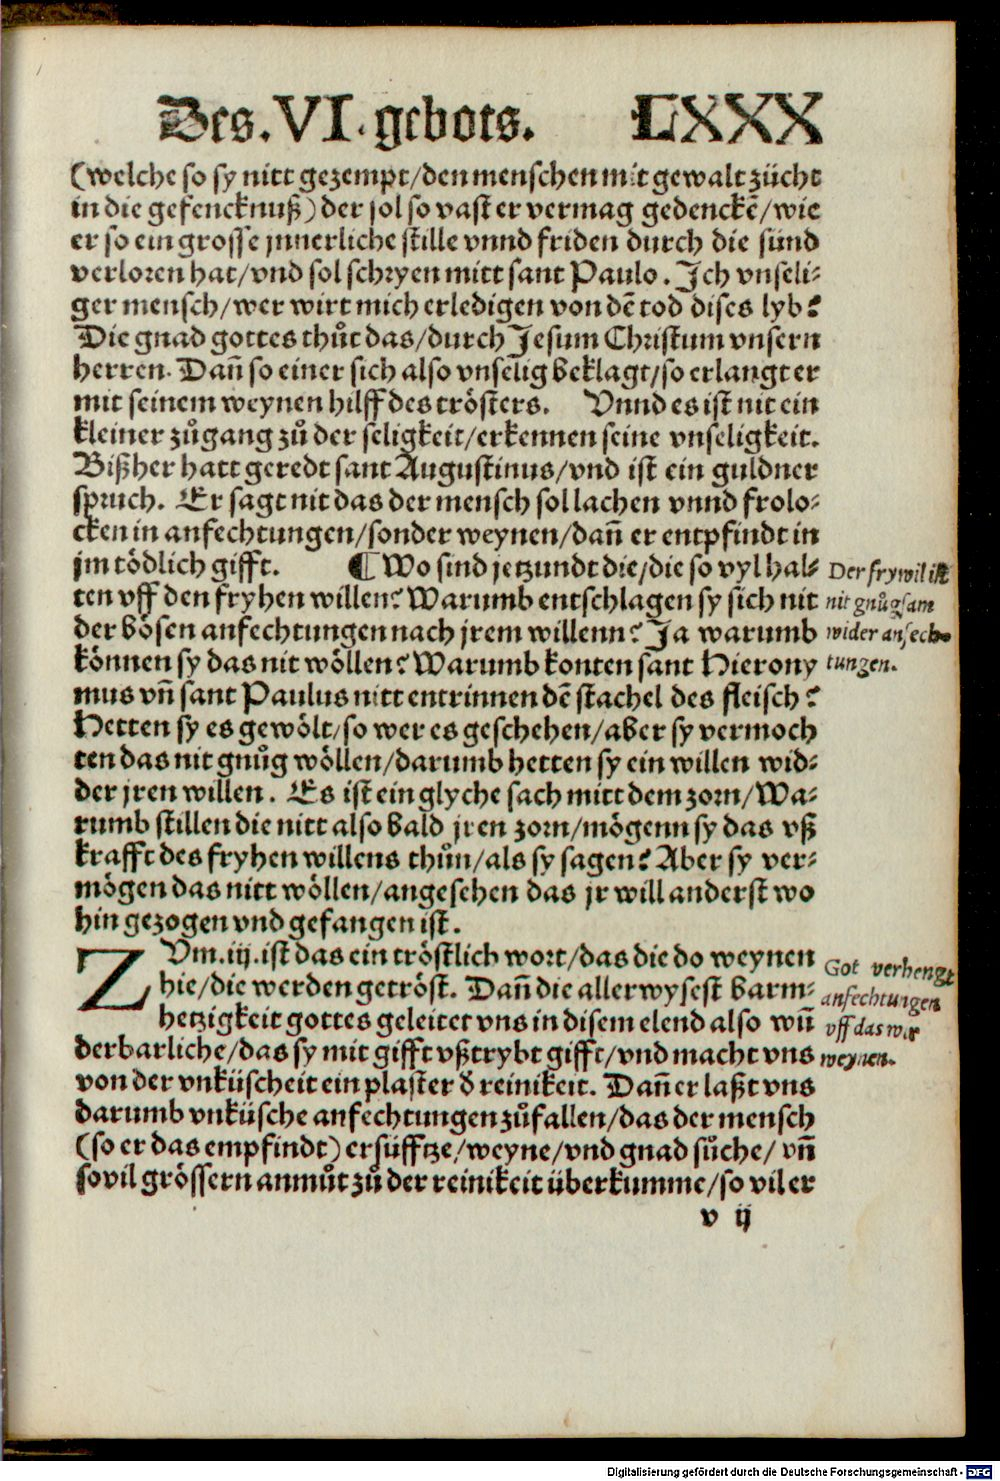 Des.VI.gebots. LXXX
(welche so sy nitt gezempt/den menschen mit gewalt zücht
in die gefencknuß) der sol so vast er vermag gedenckẽ/wie
er so ein grosse jnnerliche stille vnnd friden durch die sünd
verloren hat/vnd sol schryen mitt sant Paulo. Ich vnseli-
ger mensch/wer wirt mich erledigen von dẽ tod dises lyb?
Die gnad gottes thůt das/durch Jesum Christum vnsern
herren. Dañ so einer sich also vnselig beklagt/so erlangt er
mit seinem weynen hilff des trösters. Vnnd es ist nit ein
kleiner zůgang zů der seligkeit/erkennen seine vnseligkeit.
Bißher hatt geredt sant Augustinus/vnd ist ein guldner
spruch. Er sagt nit das der mensch sol lachen vnnd frolo-
cken in anfechtungen/sonder weynen/dañ er entpfindt in
jm tödlich gifft. ¶ Wo sind jetzundt die/die so vyl hal-
ten vff den fryhen willen? Warumb entschlagen sy sich nit
der bösen anfechtungen nach jrem willenn? Ja warumb
können sy das nit wöllen? Warumb konten sant Hierony
mus vñ sant Paulus nitt entrinnen dẽ stachel des fleisch?
Hetten sy es gewölt/so wer es geschehen/aber sy vermoch
ten das nit gnůg wöllen/darumb hetten sy ein willen wid-
der jren willen. Es ist ein glyche sach mitt dem zorn/Wa-
rumb stillen die nitt also bald jren zorn/mögenn sy das vß
krafft des fryhen willens thůn/als sy sagen? Aber sy ver-
mögen das nitt wöllen/angesehen das jr will anderst wo
hin gezogen vnd gefangen ist.
Der frywil ist
nit gnůgsam
wider anfech-
tungen.
ZVm.iij.ist das ein tröstlich wort/das die do weynen
hie/die werden getröst. Dañ die aller wysest barm-
hetzigkeit gottes geleitet vns in disem elend also wũ
derbarliche/das sy mit gifft vßtrybt gifft/vnd macht vns
von der vnküscheit ein plaster đ reinikeit. Dañ er laßt vns
darumb vnküsche anfechtungen zůfallen/das der mensch
(so er das empfindt) ersüfftze/weyne/vnd gnad sůche/vñ
so vil grössern anmůt zů der reinikeit überkumme/so vil er
Got verhengt
anfechtungen
vff das wir
weynen.
v ij
Digitalisierung gefördert durch die Deutsche Forschungsgemeinschaft - DFG